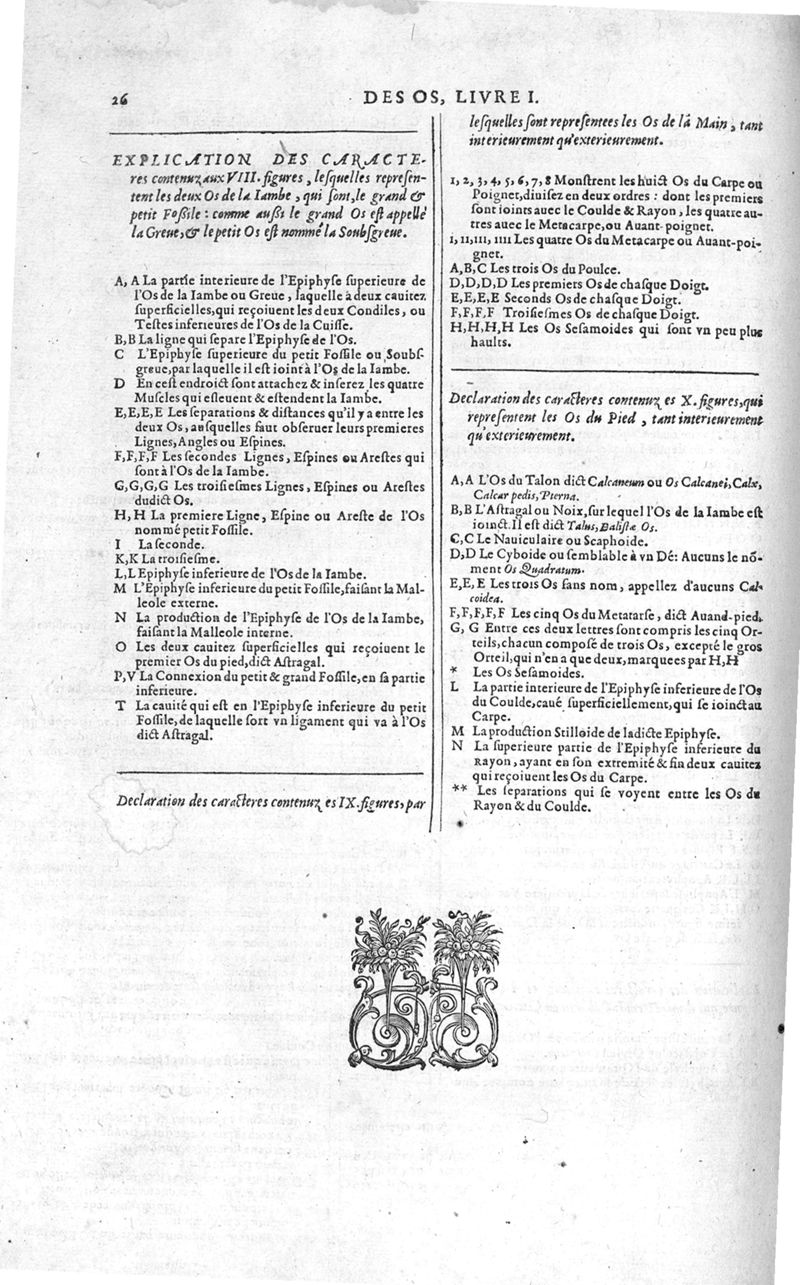 26
DES OS, LIVRE I.
EXPLICATION DES CARACTE-
res contenuz aux VIII. figures, lesquelles represen-
tent les deux Os de la Iambe, qui sont, le grand &
petit Foßile: comme außi le grand Os est appellé
la Greue, & le petit Os est nommé la Soubsgreue.
A, A La partie interieure de l'Epiphyse superieure de
l'Os de la Iambe ou Greue, laquelle à deux cauitez
superficielles, qui reçoiuent les deux Condiles, ou
Testes inferieures de l'Os de la Cuisse.
B, B La ligne qui separe l'Epiphyse de l'Os.
C L'Epiphyse superieure du petit Fossile ou Soubs-
greue, par laquelle il est ioint à l'Os de la Iambe.
D En cest endroict sont attachez & inserez les quatre
Muscles qui esleuent & estendent la Iambe.
E, E, E, E Les separations & distances qu'il y a entre les
deux Os, ausquelles faut obseruer leurs premieres
Lignes, Angles ou Espines.
F, F, F, F Les secondes Lignes, Espines ou Arestes qui
sont à l'Os de la Iambe.
G, G, G, G Les troisiesmes Lignes, Espines ou Arestes
dudict Os.
H, H La premiere Ligne, Espine ou Areste de l'Os
nommé petit Fossile.
I La seconde.
K, K La troisiesme.
L, L Epiphyse inferieure de l'Os de la Iambe.
M L'Epiphyse inferieure du petit Fossile, faisant la Mal-
leole externe.
N La production de l'Epiphyse de l'Os de la Iambe,
faisant la Malleole interne.
O Les deux cauitez superficielles qui reçoiuent le
premier Os du pied, dict Astragal.
P, V La Connexion du petit & grand Fossile, en sa partie
inferieure.
T La cauité qui est en l'Epiphyse inferieure du petit
Fossile, de laquelle sort vn ligament qui va à l'Os
dict Astragal.
Declaration des caracteres contenuz es IX. figures, par
lesquelles sont representees les Os de la Main, tant
interieurement qu'exterieurement.
1, 2, 3, 4, 5, 6, 7, 8 Monstrent les huict Os du Carpe ou
Poignet, diuisez en deux ordres: dont les premiers
sont ioints auec le Coulde & Rayon, les quatre au-
tres auec le Metacarpe, ou Auant-poignet.
i, ii, iii, iiii Les quatre Os du Metacarpe ou Auant-poi-
gnet.
A, B, C Les trois Os du Poulce.
D, D, D, D Les premiers Os de chasque Doigt.
E, E, E, E Seconds Os de chasque Doigt.
F, F, F, F Troisiesmes Os de chasque Doigt.
H, H, H, H Les Os Sesamoides qui sont vn peu plus
haults.
Declaration des caracteres contenuz es X. figures, qui
representent les Os du Pied, tant interieurement
qu'exterieurement.
A, A L'Os du Talon dict Calcaneum ou Os Calcanei, Calx,
Calcar pedis, Pterna.
B, B L'Astragal ou Noix, sur lequel l'Os de la Iambe est
ioinct. Il est dict Talus, Balistæ Os.
C, C Le Nauiculaire ou Scaphoide.
D, D Le Cyboide ou semblable à vn Dé: Aucuns le nō-
ment Os Quadratum.
E, E, E Les trois Os sans nom, appellez d'aucuns Cal-
coidea.
F, F, F, F, F Les cinq Os du Metatarse, dict Auand-pied.
G, G Entre ces deux lettres sont compris les cinq Or-
teils, chacun composé de trois Os, excepté le gros
Orteil, qui n'en a que deux, marquees par H, H
* Les Os Sesamoides.
L La partie interieure de l'Epiphyse inferieure de l'Os
du Coulde, caué superficiellement, qui se ioinct au
Carpe.
M La production Stilloide de ladicte Epiphyse.
N La superieure partie de l'Epiphyse inferieure du
Rayon, ayant en son extremité & fin deux cauitez
qui reçoiuent les Os du Carpe.
** Les separations qui se voyent entre les Os du
Rayon & du Coulde.